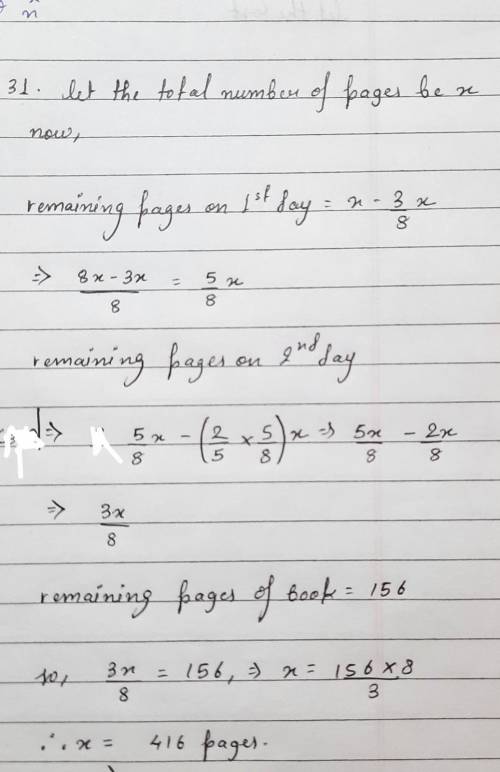 n
31. let the total number of pages be x
now,
remaining pages on 1st day = x - 3/8 x
⇒ (8x - 3x)/8 = 5/8 x
remaining pages on 2nd day
⇒ 5x/8 - (2/5 × 5/8) x ⇒ 5x/8 - 2x/8
⇒ 3x/8
remaining pages of book = 156
so, 3x/8 = 156, ⇒ x = (156 × 8)/3
∴ x = 416 pages.